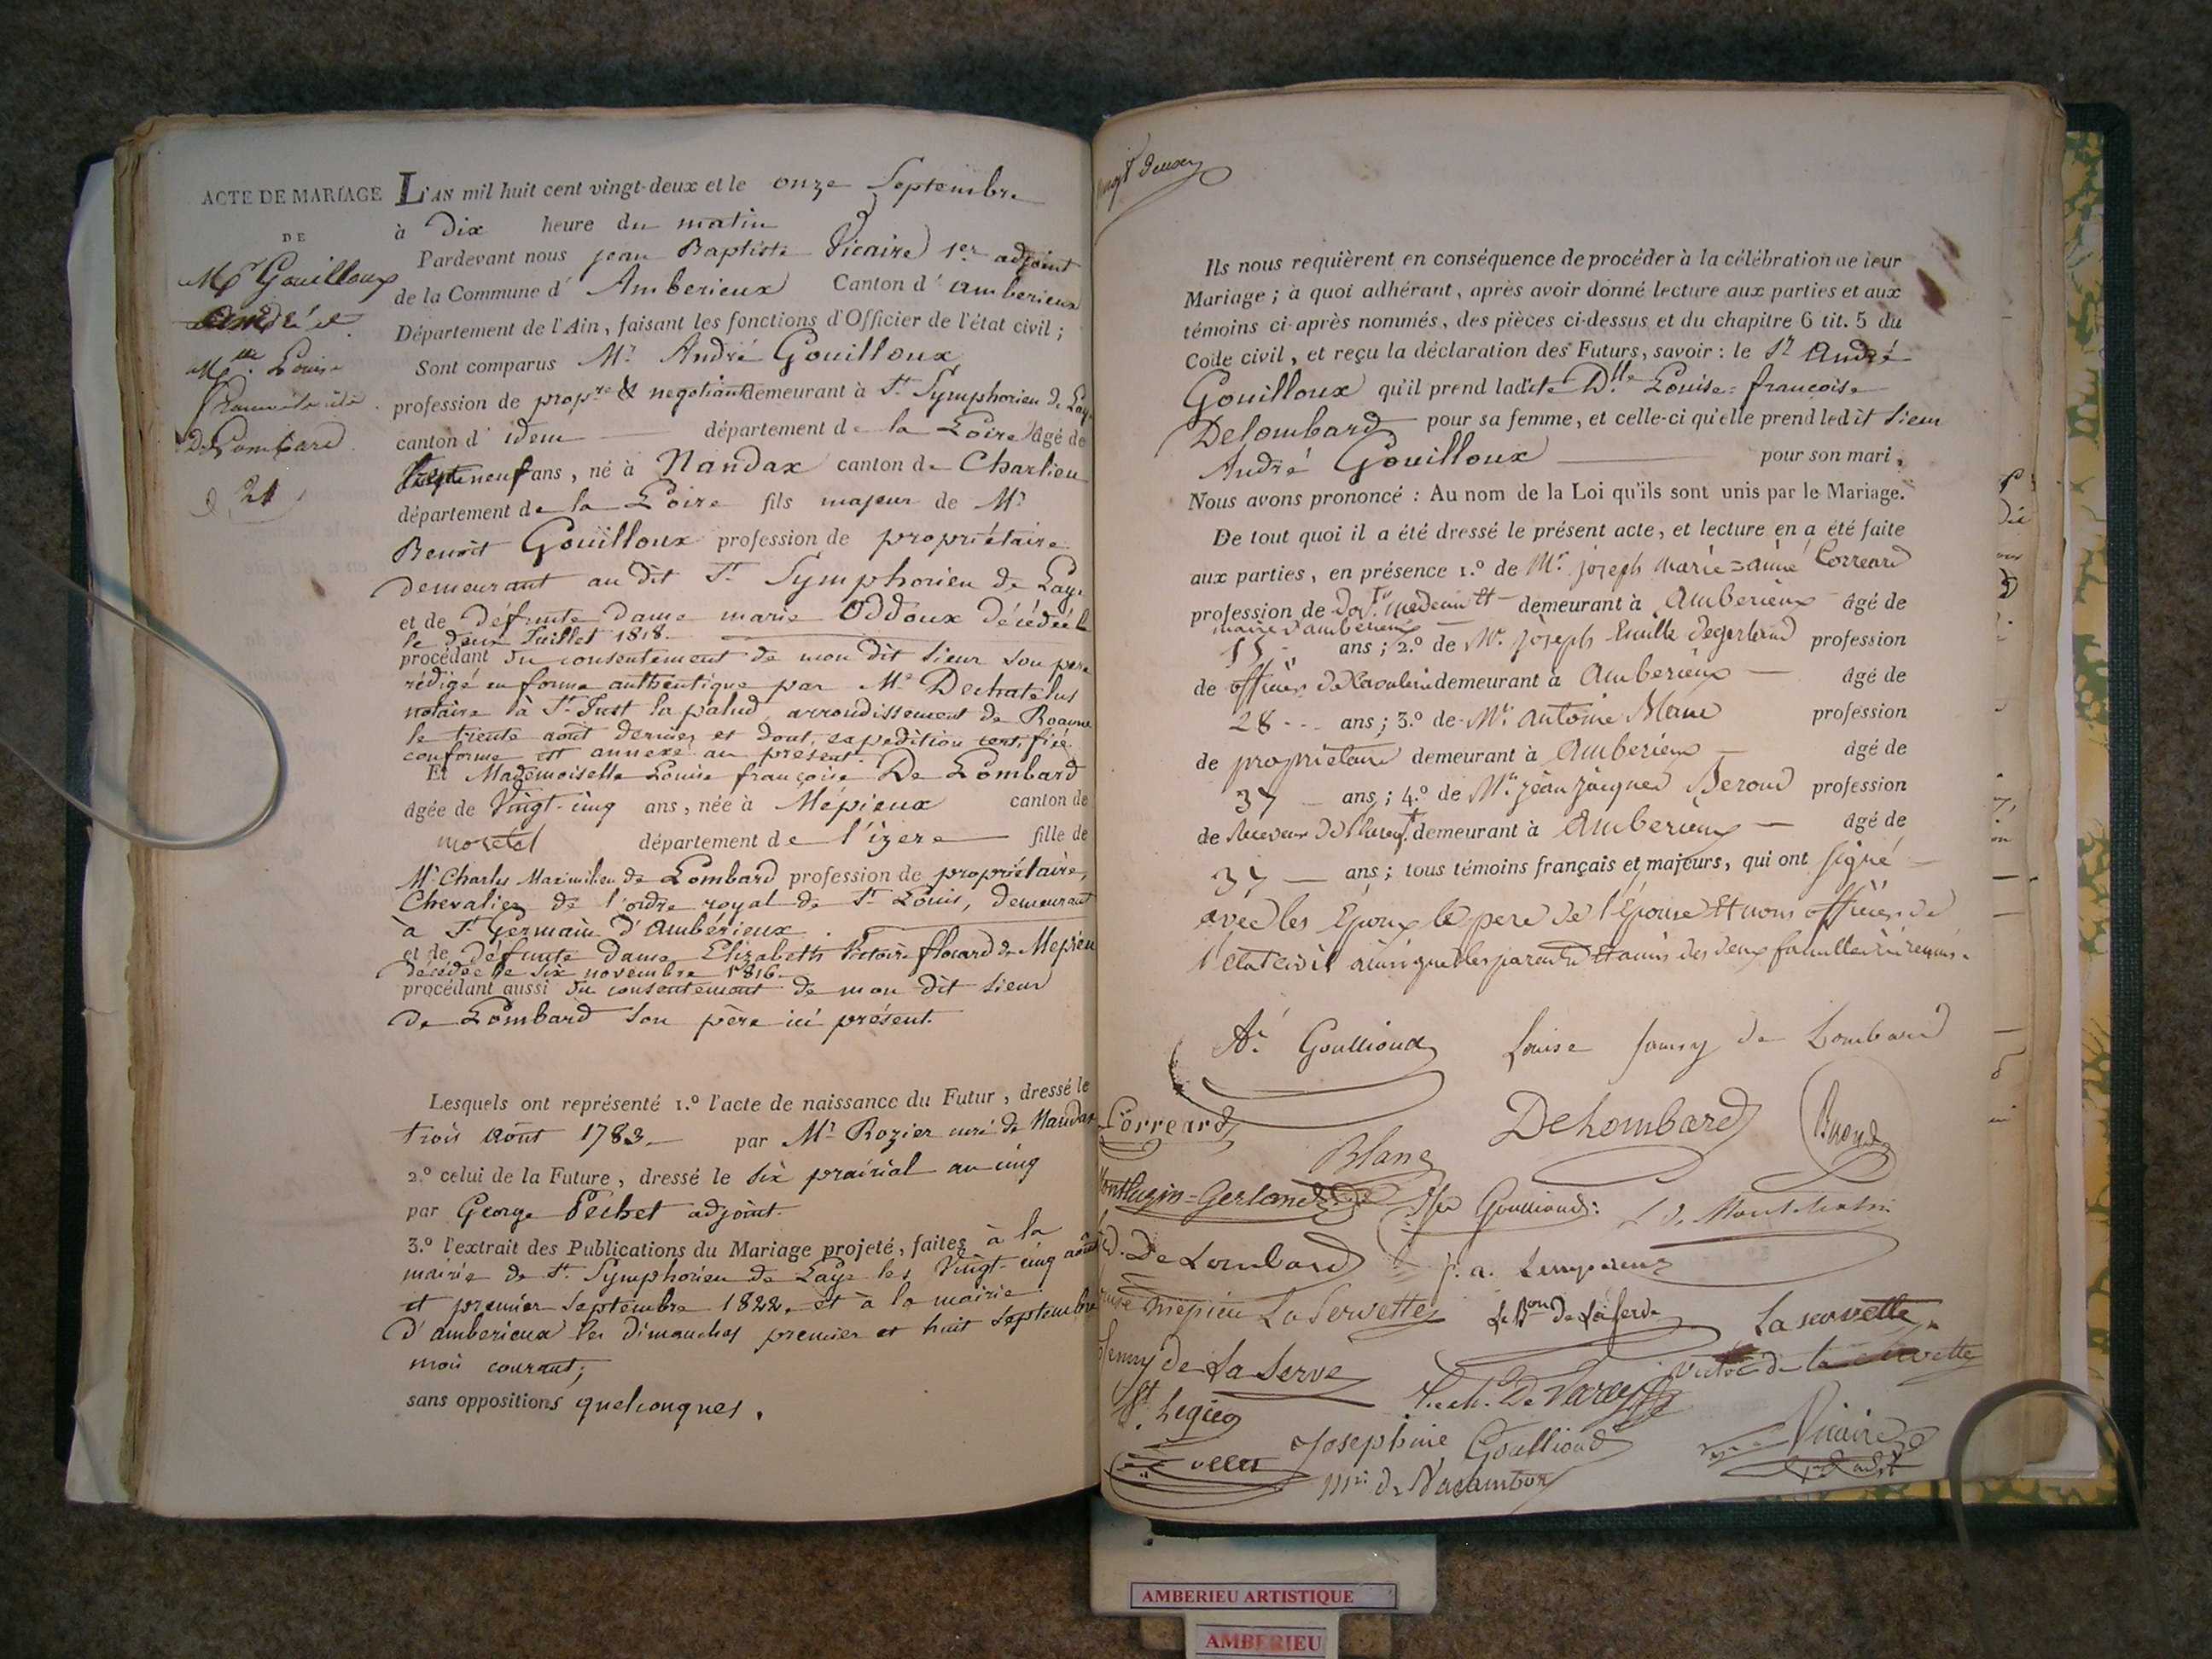 ACTE DE MARIAGE
DE
Mr Gouilloux
André et
Melle Louise
De Lombard
21
L'AN mil huit cent vingt-deux et le onze Septembre
à Dix heure du matin
Pardevant nous jean Baptiste Vicaire 1er adjoint
de la Commune d'Amberieux Canton d'amberieux
Département de l'Ain, faisant les fonctions d'Officier de l'état civil ;
Sont comparus Mr André Gouilloux
profession de propre & negotiant demeurant à St Symphorien de Lay
canton d' idem département de la Loire âgé de
neuf ans, né à Nandax canton de Charlieu
département de la Loire fils majeur de Mr
Benoit Gouilloux profession de propriétaire
demeurant au dit St Symphorien de Laye
et de défunte dame marie Oddoux décédée
le deux Juillet 1818
procédant du consentement de mon dit sieur son père
rédigé en forme authentique par Me Dechatelus
notaire à St Just la palud arrondissement de Roanne
le trente août dernier et dont expédition certifiée
conforme est annexé au présent.
Et Mademoiselle Louise françoise De Lombard
âgée de Vingt-cinq ans, née à Mépieux canton de
moretel département de l'izere fille de
Mr Charles Maximilien de Lombard profession de propriétaire,
Chevalier de l'ordre royal de St Louis, demeurant
à St Germain d'Ambérieux.
et de défunte dame Elizabeth Victoire flocard de Mepieu
décédée le six novembre 1816
procédant aussi du consentement de mon dit sieur
de Lombard son père ici présent.
Lesquels ont représenté 1.º l'acte de naissance du Futur, dressé le
trois Août 1783 par Mr Rozier curé de Nandax
2.º celui de la Future, dressé le six prairial an cinq
par George Pechet adjoint.
3.º l'extrait des Publications du Mariage projeté, faites à la
mairie de St Symphorien de Laye les Vingt-cinq août
et premier Septembre 1822. et à la mairie
d'amberieux les dimanches premier et huit Septembre
mois courant;
sans oppositions quelconques.
vingt deux
Ils nous requièrent en conséquence de procéder à la célébration de leur
Mariage ; à quoi adhérant, après avoir donné lecture aux parties et aux
témoins ci-après nommés, des pièces ci-dessus et du chapitre 6 tit. 5 du
Code civil, et reçu la déclaration des Futurs, savoir : le Sr André
Gouilloux qu'il prend ladite Dlle Louise-françoise
Delombard pour sa femme, et celle-ci qu'elle prend ledit Sieur
André Gouilloux pour son mari,
Nous avons prononcé : Au nom de la Loi qu'ils sont unis par le Mariage.
De tout quoi il a été dressé le présent acte, et lecture en a été faite
aux parties, en présence 1.º de Mr joseph marie=aimé Correard
profession de médecin et demeurant à Amberieux âgé de
maire d'amberieux
ans ; 2.º de Mr joseph Emille degerland profession
de officier de Cavalerie demeurant à Amberieux âgé de
28 ans ; 3.º de Mr Antoine Blanc profession
de propriétaire demeurant à Amberieux âgé de
37 ans ; 4.º de Mr jean jacques profession
de Receveur de demeurant à Amberieux âgé de
37 ans ; tous témoins français et majeurs, qui ont signé
avec les Epoux le pere de l'épouse Et nous officier de
l'état civil ainsi que les parents Et amis des deux familles ici reunis.
Ad Goullioud Louise fanny de Lombard
Correard DeLombard
Blanc
Montluzin-Gerland Goullioud
De Lombard
mépieu La Servette Le Bon de LaServe Laservette
Jenny de La Serve Victor de la Servette
St. Leger De Varax
Josephine Goullioud Vicaire
AMBERIEU ARTISTIQUE
AMBERIEU